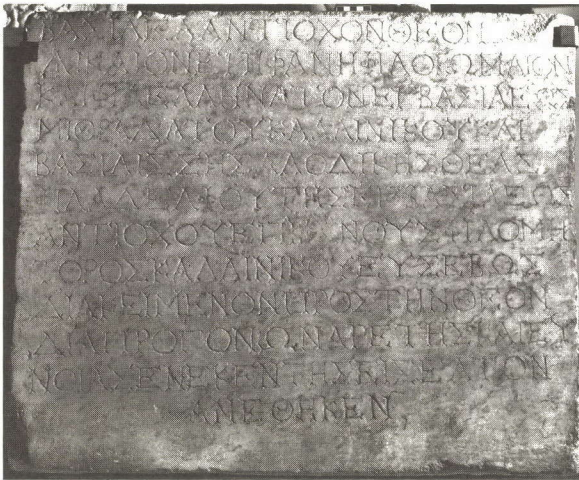 ΒΑΣΙΛΕΑΑΝΤΙΟΧΟΝΘΕΟΝ
ΔΙΚΑΙΟΝΕΠΙΦΑΝΗΦΙΛΟΡΩΜΑΙΟΝ
ΚΑΙΦΙΛΕΛΛΗΝΑΤΟΝΕΓΒΑΣΙΛΕΩΣ
ΜΙΘΡΑΔΑΤΟΥΚΑΛΛΙΝΙΚΟΥΚΑΙ
ΒΑΣΙΛΙΣΣΗΣΛΑΟΔΙΚΗΣΘΕΑΣ
ΦΙΛΑΔΕΛΦΟΥΤΗΣΕΚΒΑΣΙΛΕΩΣ
ΑΝΤΙΟΧΟΥΕΠΙΦΑΝΟΥΣΦΙΛΟΜΗ
ΤΟΡΟΣΚΑΛΛΙΝΙΚΟΥΕΥΣΕΒΩΣ
ΔΙΑΚΕΙΜΕΝΟΝΠΡΟΣΤΗΝΘΕΟΝ
ΔΙΑΠΡΟΓΟΝΩΝΑΡΕΤΗΣΚΑΙΕΥ
ΝΟΙΑΣΕΝΕΚΕΝΤΗΣΕΙΣΕΑΥΤΟΝ
ΑΝΕΘΗΚΕΝ